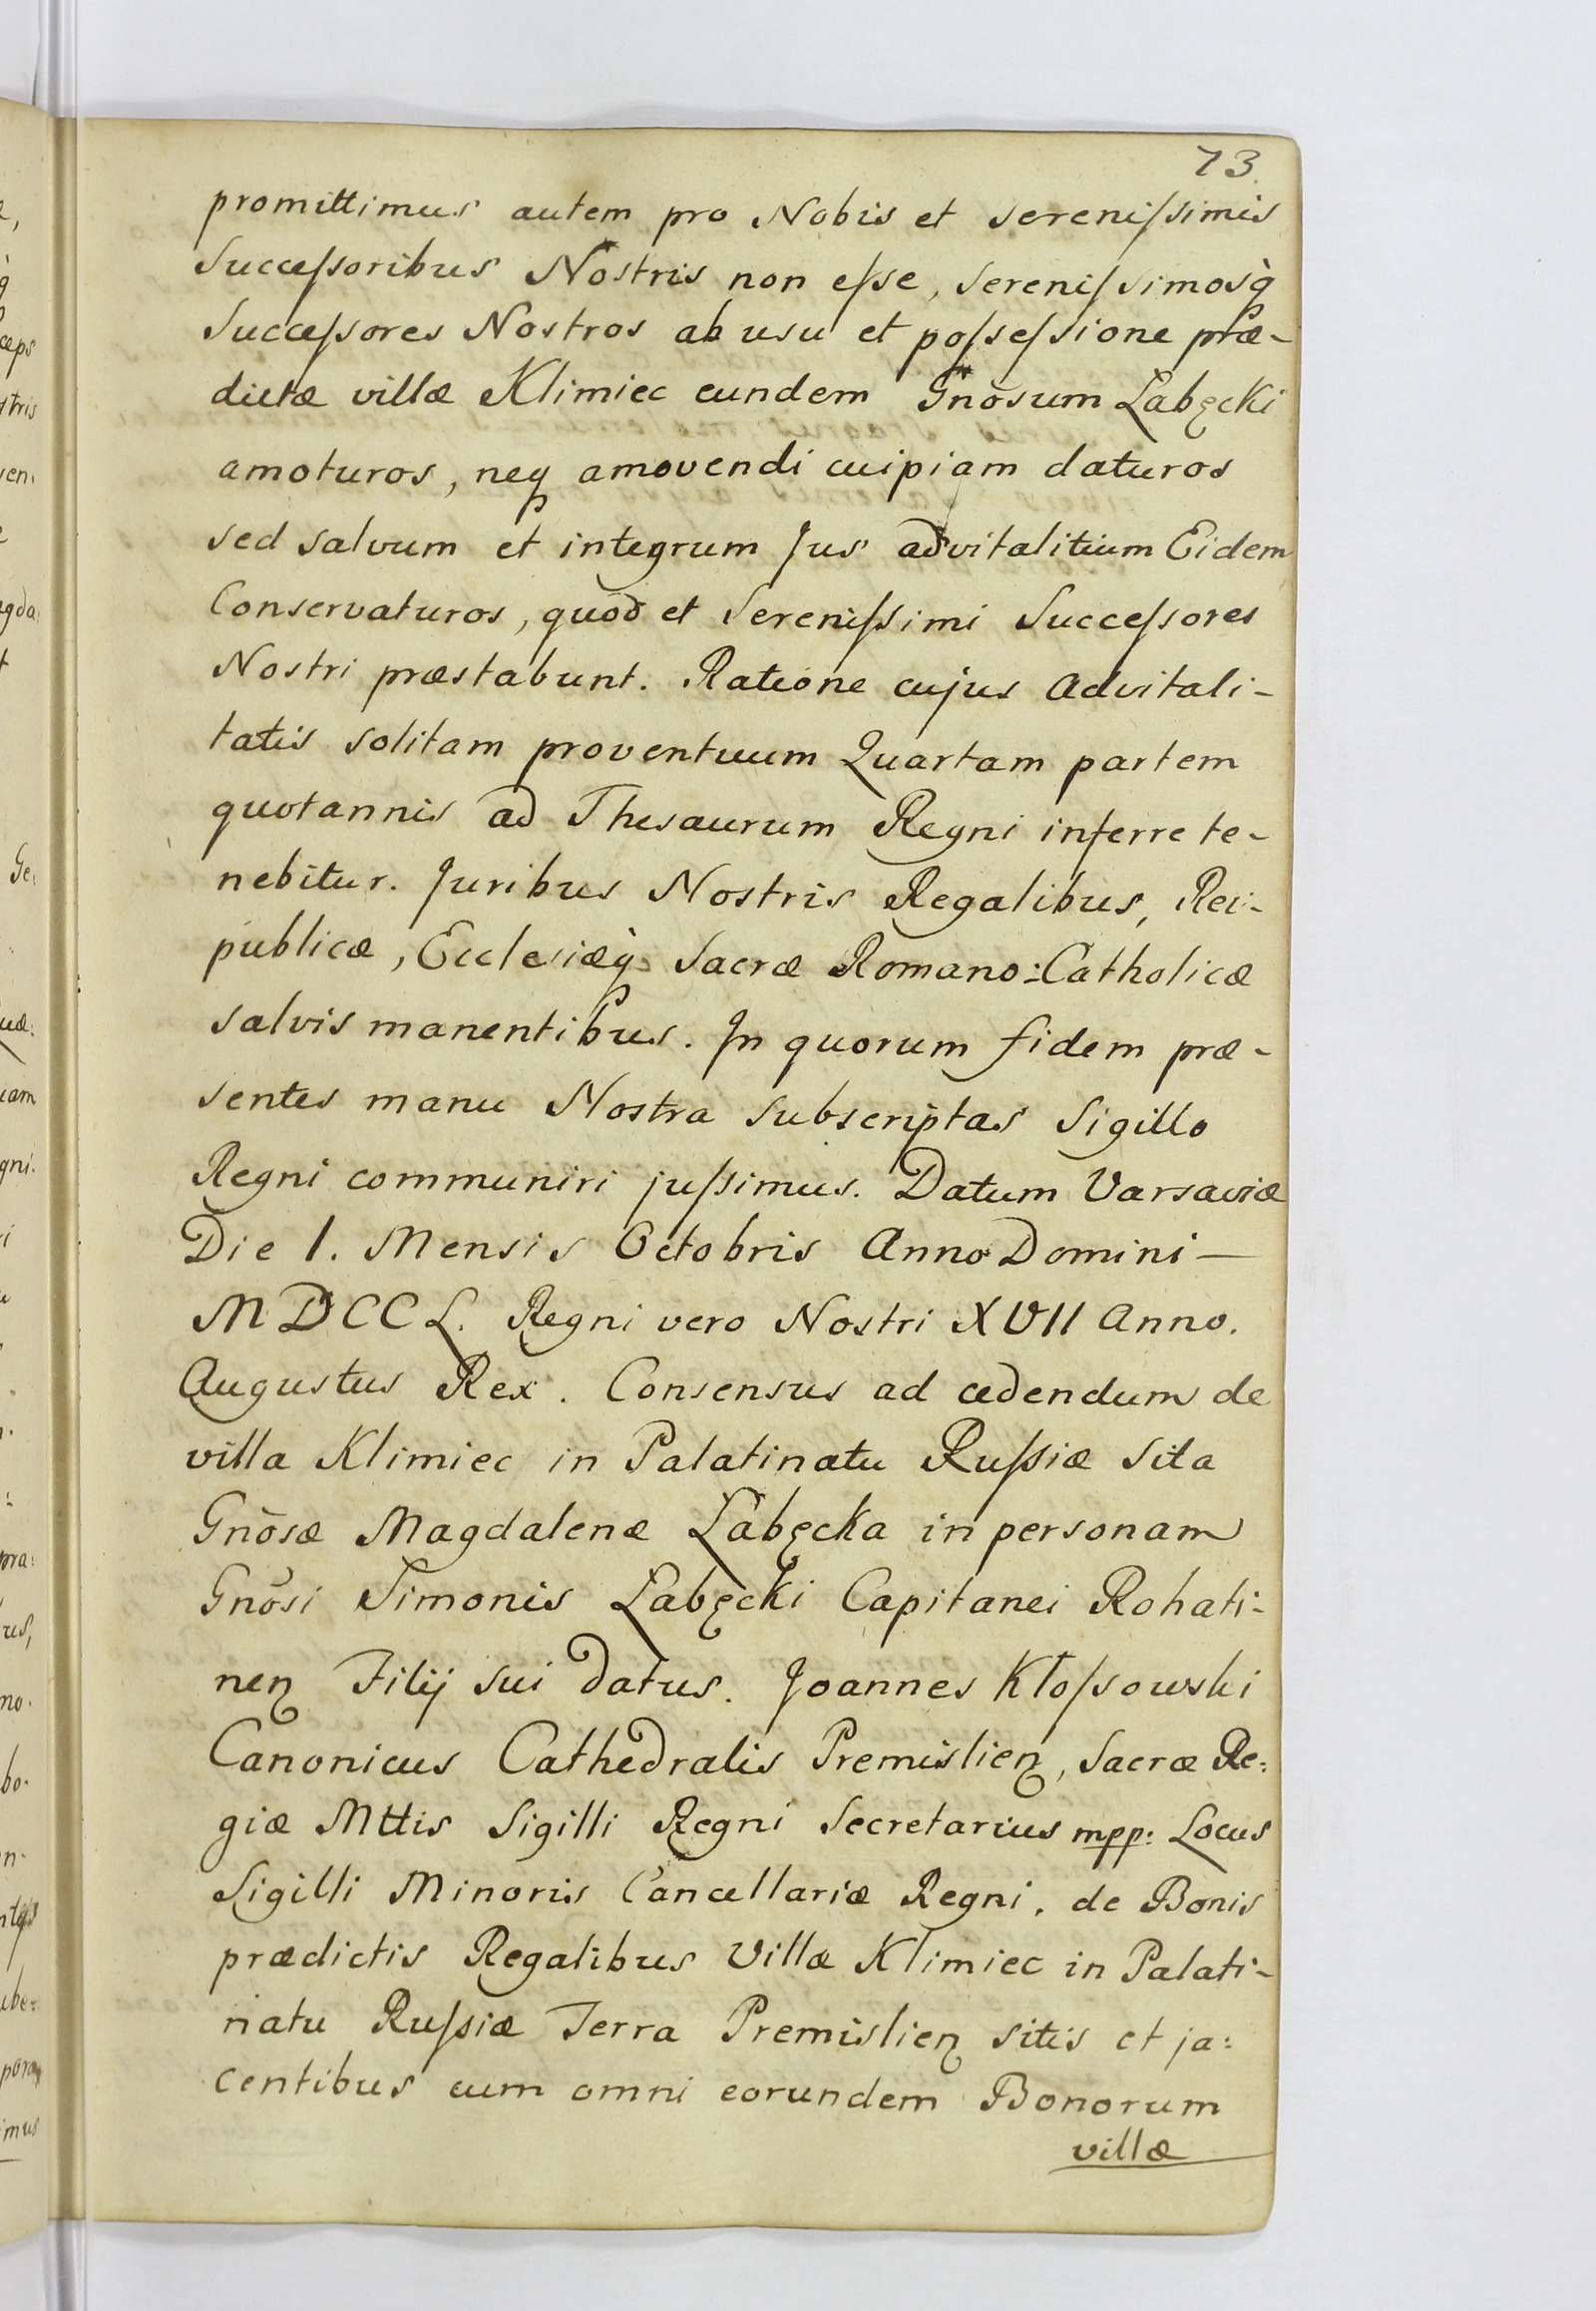 73
promittimus autem pro Nobis et Serenißimis
Succeßoribus Nostris non eße, Serenißimosq̀
Succeßores Nostros ab usu et poßeßione præ-
dictæ villæ Klimiec eundem Gnõsum Łabęcki
amoturos, neq amovendi cuipiam daturos
sed salvum et integrum Jus advitalitium Eidem
Conservaturos, quod et Serenißimi Succeßores
Nostri præstabunt. Ratione cujus Advitali-
tatis solitam proventuum Quartam partem
quotannis ad Thesaurum Regni inferre te-
nebitur. Juribus Nostris Regalibus, Rei-
publicæ, Ecclesiæq̀ Sacræ Romano-Catholicæ
salvis manentibus. In quorum fidem præ-
sentes manu Nostra subscriptas Sigillo
Regni communiri jußimus. Datum Varsaviæ
Die 1. Mensis Octobris Anno Domini —
MDCCL. Regni vero Nostri XVII Anno.
Augustus Rex. Consensus ad cedendum de
villa Klimiec in Palatinatu Rußiæ sita
Gnõsæ Magdalenæ Łabęcka in personam
Gnõsi Simonis Łabęcki Capitanei Rohati-
nen Filij sui datus. Joannes Kłoßowski
Canonicus Cathedralis Premislien, Sacræ Re:
giæ Mttis Sigilli Regni Secretarius mpp: Locus
Sigilli Minoris Cancellariæ Regni. de Bonis
prædictis Regalibus Villæ Klimiec in Palati-
natu Rußiæ Terra Premislien sitis et ja:
centibus cum omni eorundem Bonorum
villæ